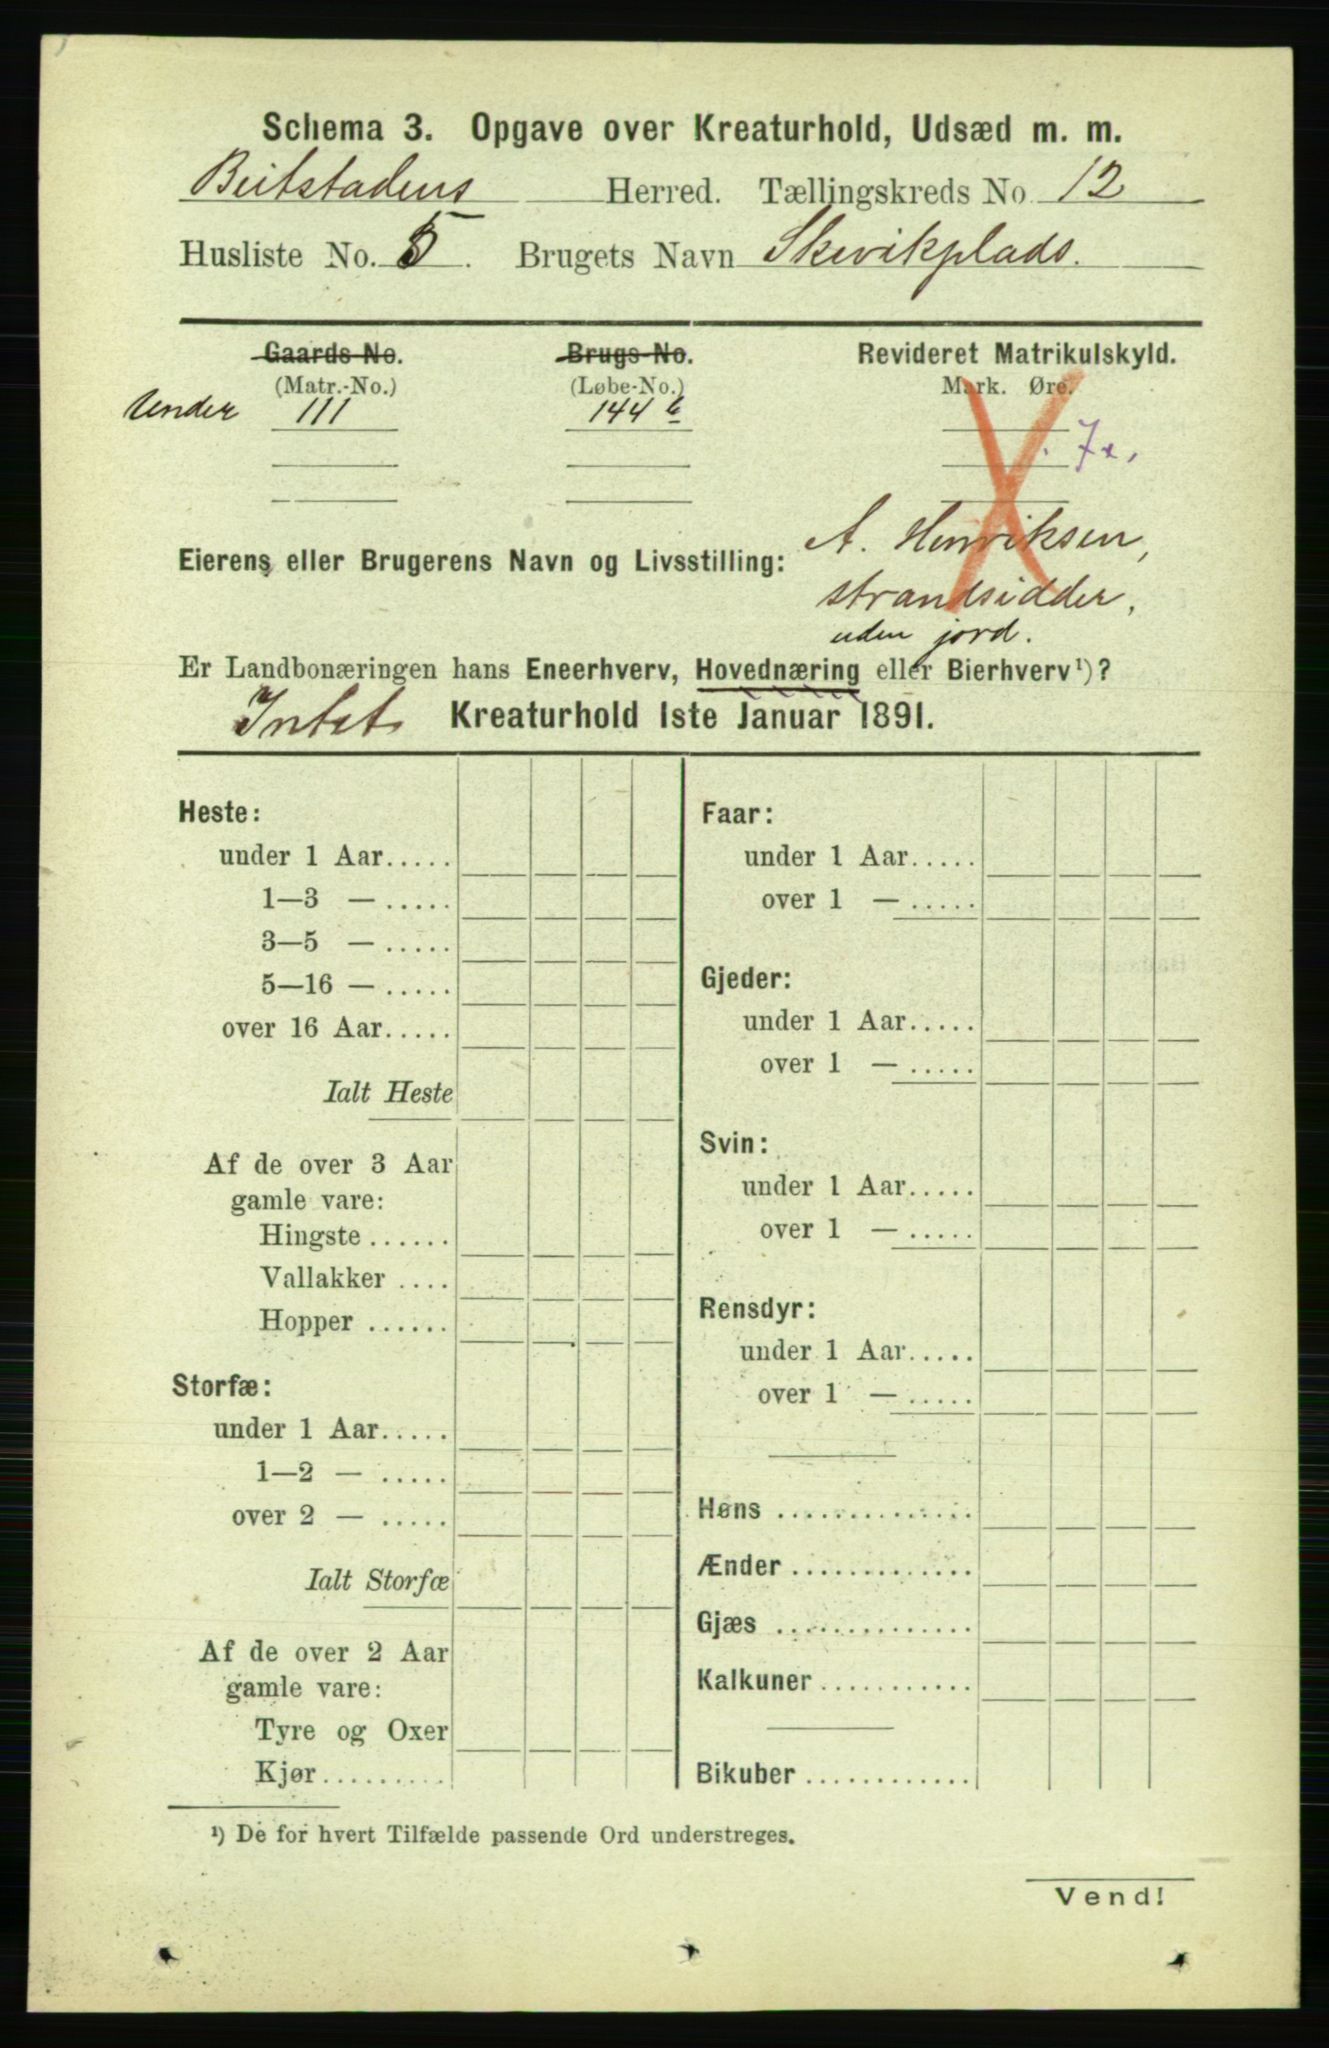 Schema 3. Opgave over Kreaturhold, Udsæd m. m.
Beitstadens Herred. Tællingskreds No. 12
Husliste No. 5. Brugets Navn Skevikplads.
Gaards-No. Brugs-No. Revideret Matrikulskyld.
(Matr.-No.) (Løbe-No.) Mark. Øre.
Under 111 144 b
Eierens eller Brugerens Navn og Livsstilling: A. Henriksen,
strandsidder,
uden jord.
Er Landbonæringen hans Eneerhverv, Hovednæring eller Bierhverv¹)?
Intet Kreaturhold 1ste Januar 1891.
Heste:
under 1 Aar.....
1—3 — .....
3—5 — .....
5—16 — .....
over 16 Aar.....
Ialt Heste
Af de over 3 Aar
gamle vare:
Hingste ......
Vallakker ....
Hopper ......
Storfæ:
under 1 Aar.....
1—2 — .....
over 2 — .....
Ialt Storfæ
Af de over 2 Aar
gamle vare:
Tyre og Oxer
Kjør..........
Faar:
under 1 Aar.....
over 1 — .....
Gjeder:
under 1 Aar.....
over 1 — .....
Svin:
under 1 Aar.....
over 1 — .....
Rensdyr:
under 1 Aar.....
over 1 — .....
Høns ..............
Ænder .............
Gjæs ..............
Kalkuner ...........
Bikuber ............
¹) De for hvert Tilfælde passende Ord understreges.
Vend!